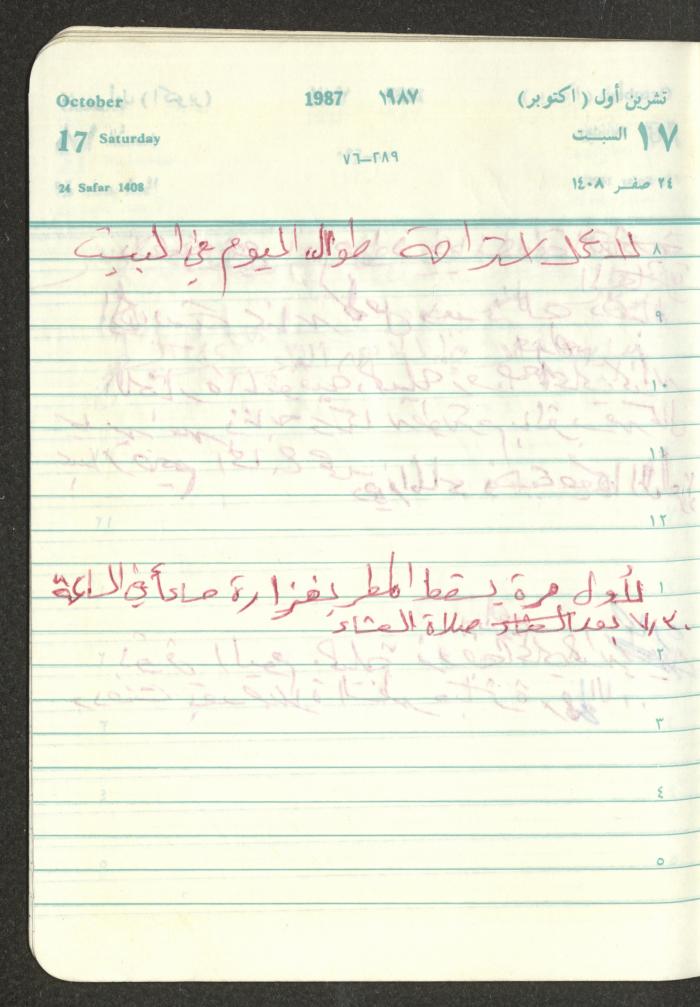 October 1987 ١٩٨٧ تشرين أول (اكتوبر)
17 Saturday ٢٨٩–٧٦ السبت ١٧
24 Safar 1408 ٢٤ صفر ١٤٠٨
٨ لا عمل استراحة طوال اليوم في البيت
٩
١٠
١١
١٢
١ لأول مرة يسقط المطر بغزارة مساءً في الساعة
٧٫٣٠ بعد العشاء صلاة العشاء
٢
٣
٤
٥